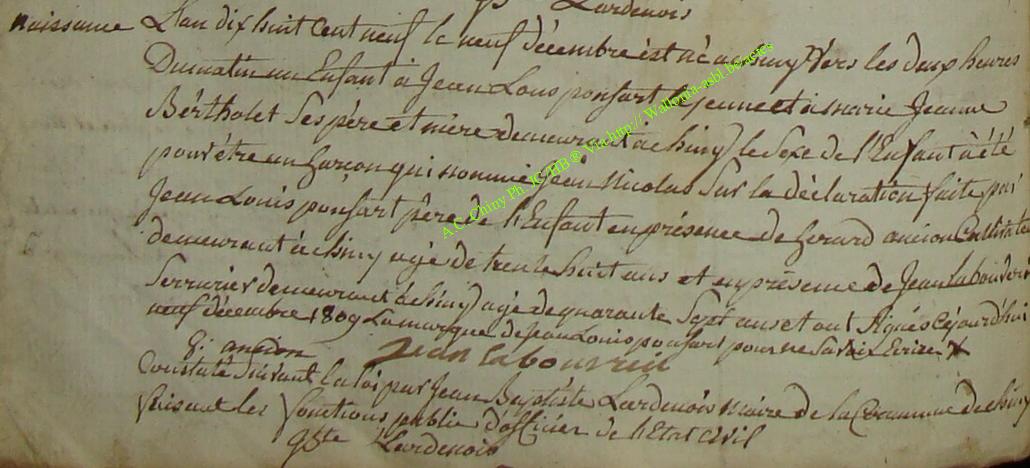 Lardenois
naissance L'an dix huit cent neuf le neuf décembre est né a chiny vers les deux heures
Du matin un Enfant à Jean Louis ponsart le jeune et à marie Jeanne
Bértholet Ses père et mère demeurant a chiny le Sexe de l'Enfant à été
pour être un garçon qui nommé Jean Nicolas Sur la déclaration faite par
Jean Louis ponsart père de l'Enfant en présence de Gerard ancion Cultivateur
demeurant à chiny agé de trente huit ans et en présence de Jean
Serrurier demeurant à chiny agé de quarante Sept ans et ont Signés Cejourd'hui
neuf décembre 1809 La marque de Jean Louis ponsart pour ne Savoir Ecrire X
G: ancion Jean labouvreil
Constaté Suivant la loi par Jean Baptiste Lardenois maire de la Commune de chiny
faisant les fonctions public d'officier de l'Etat Civil
Lardenois
A.C. Chiny Ph. JC/HB ® Via http:// Wallonia-asbl.be